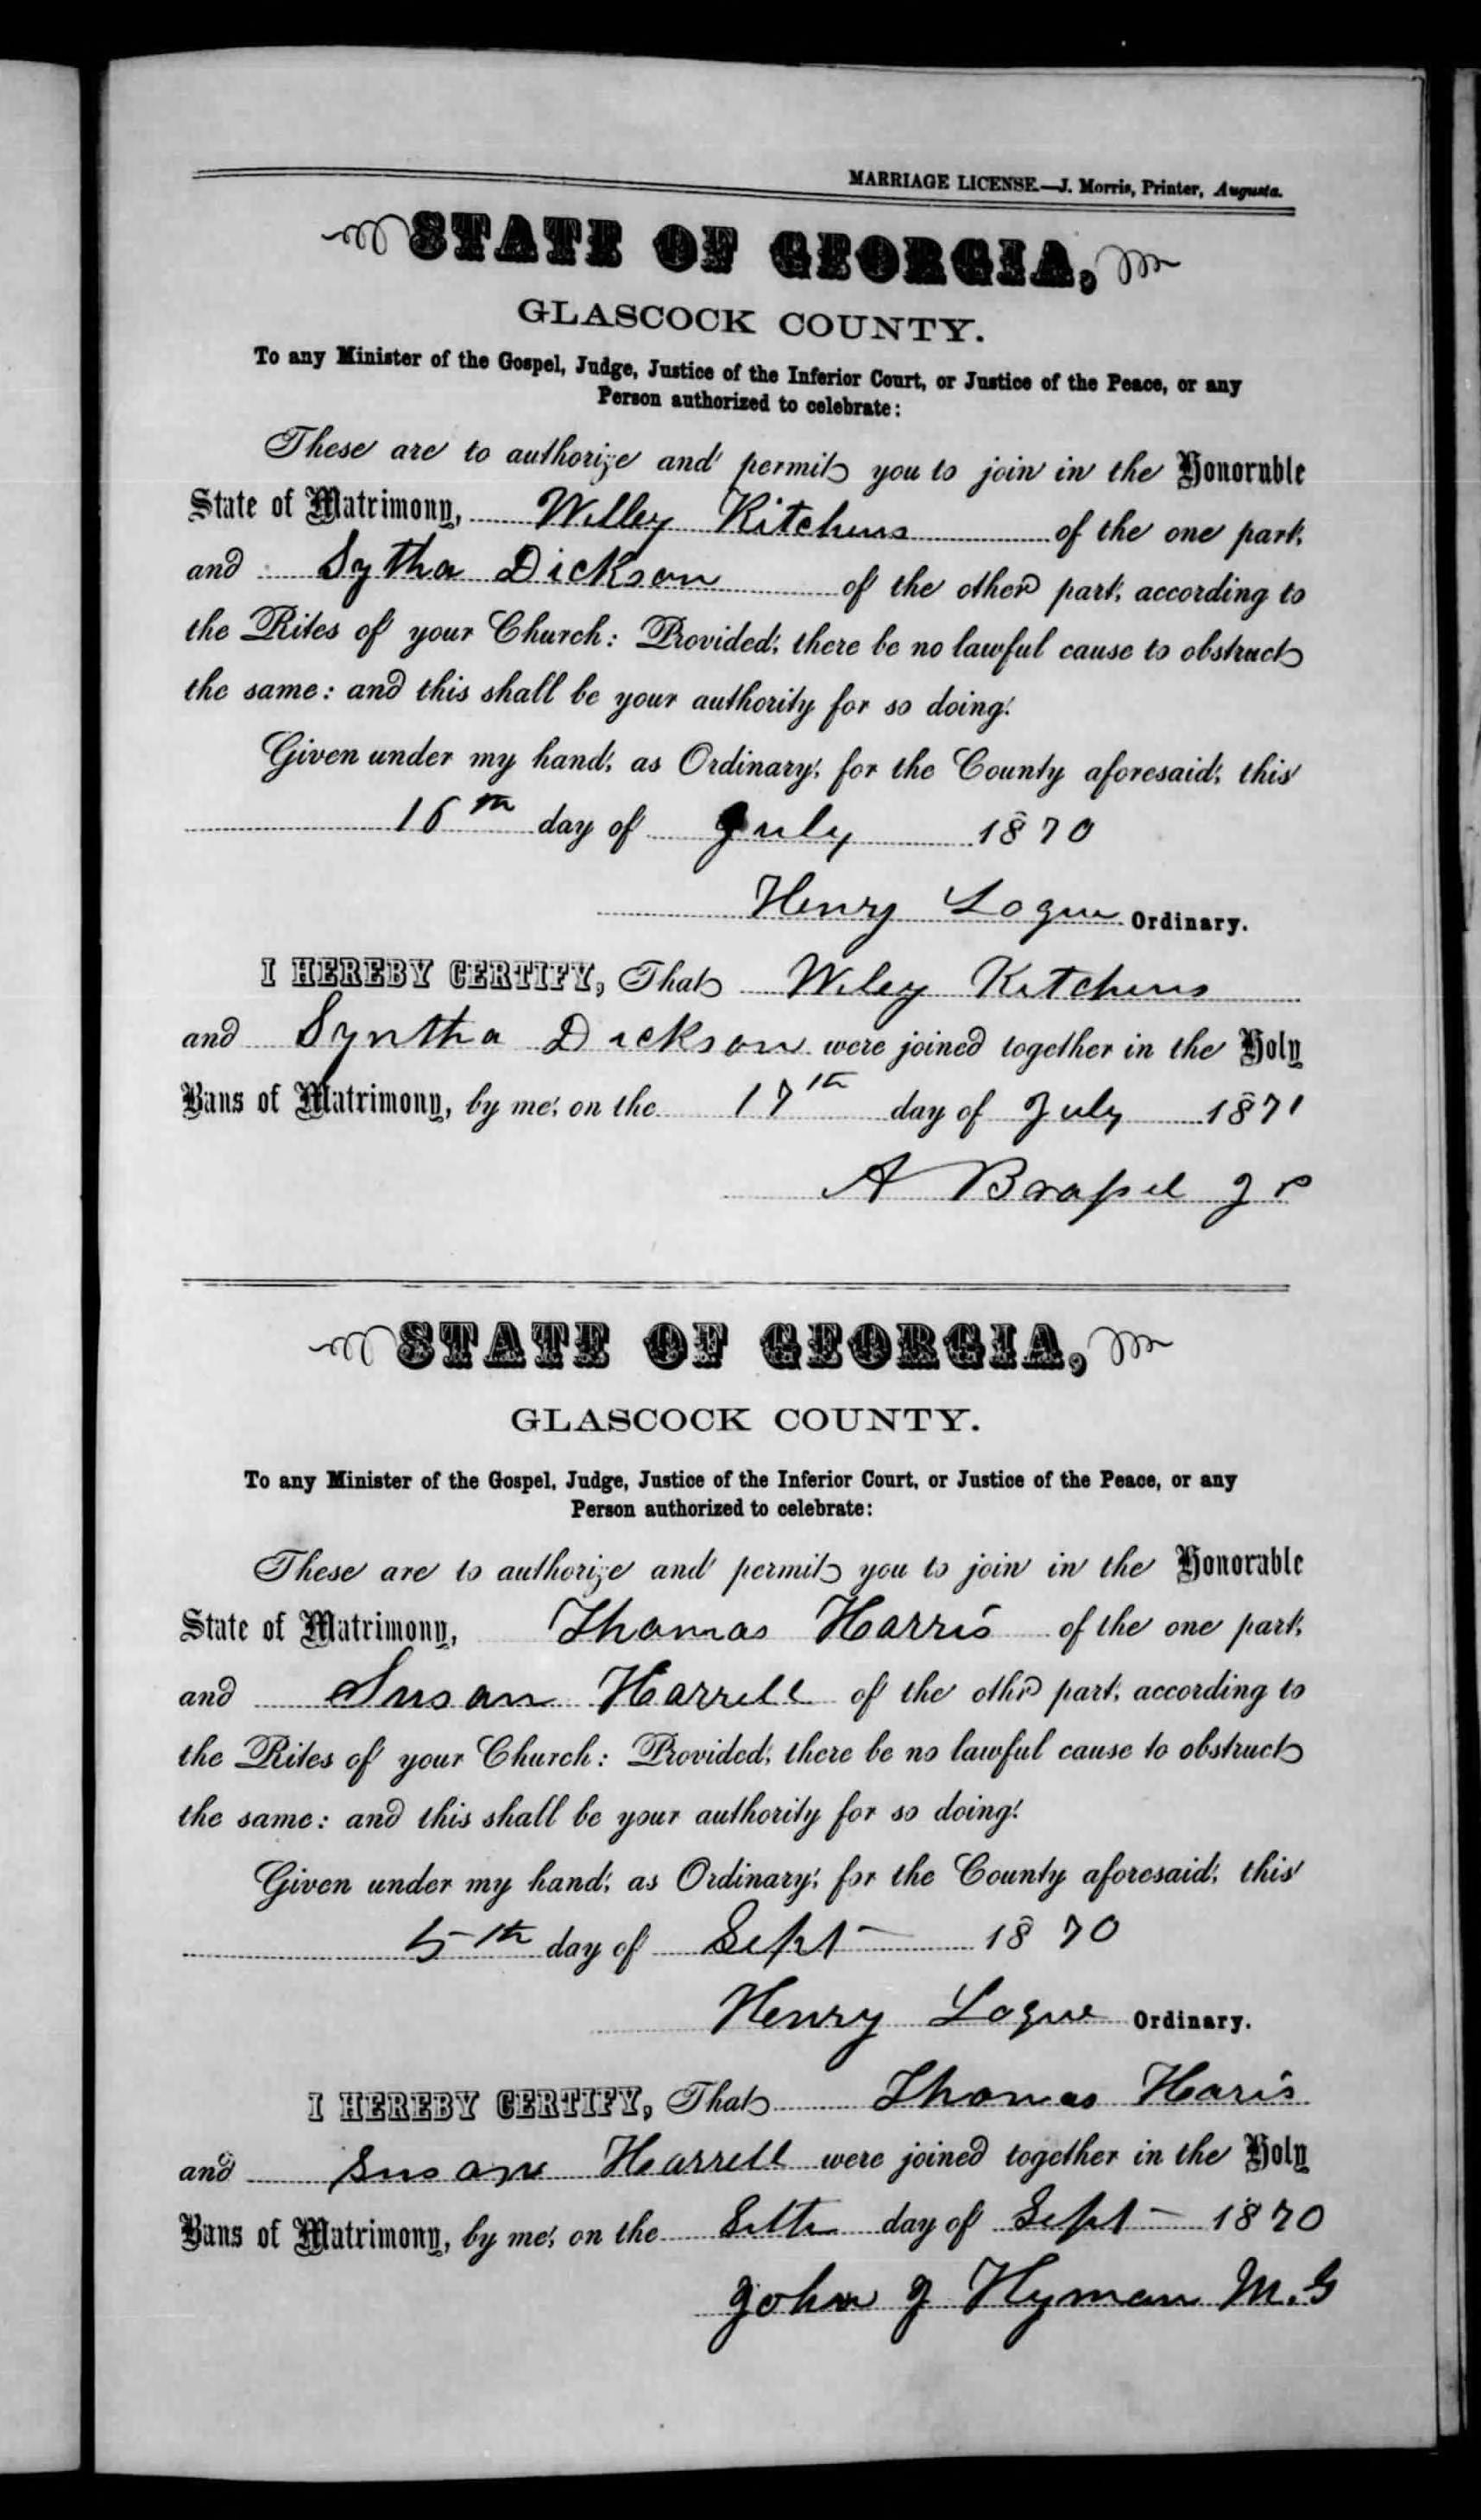 MARRIAGE LICENSE.—J. Morris, Printer, Augusta.
STATE OF GEORGIA,
GLASCOCK COUNTY.
To any Minister of the Gospel, Judge, Justice of the Inferior Court, or Justice of the Peace, or any
Person authorized to celebrate:
These are to authorize and permit you to join in the Honorable
State of Matrimony, Willey Kitchens of the one part,
and Sytha Dickson of the other part, according to
the Rites of your Church: Provided, there be no lawful cause to obstruct
the same: and this shall be your authority for so doing.
Given under my hand, as Ordinary, for the County aforesaid, this
16th day of July 1870
Henry Logue Ordinary.
I HEREBY CERTIFY, That Wiley Kitchens
and Syntha Dickson were joined together in the Holy
Bans of Matrimony, by me, on the 17th day of July 1871
A Brassel J P
STATE OF GEORGIA,
GLASCOCK COUNTY.
To any Minister of the Gospel, Judge, Justice of the Inferior Court, or Justice of the Peace, or any
Person authorized to celebrate:
These are to authorize and permit you to join in the Honorable
State of Matrimony, Thomas Harris of the one part,
and Susan Harrell of the other part, according to
the Rites of your Church: Provided, there be no lawful cause to obstruct
the same: and this shall be your authority for so doing.
Given under my hand, as Ordinary, for the County aforesaid, this
5th day of Sept 1870
Henry Logue Ordinary.
I HEREBY CERTIFY, That Thomas Haris
and Susan Harrell were joined together in the Holy
Bans of Matrimony, by me, on the day of Sept 1870
John J Hyman M.G